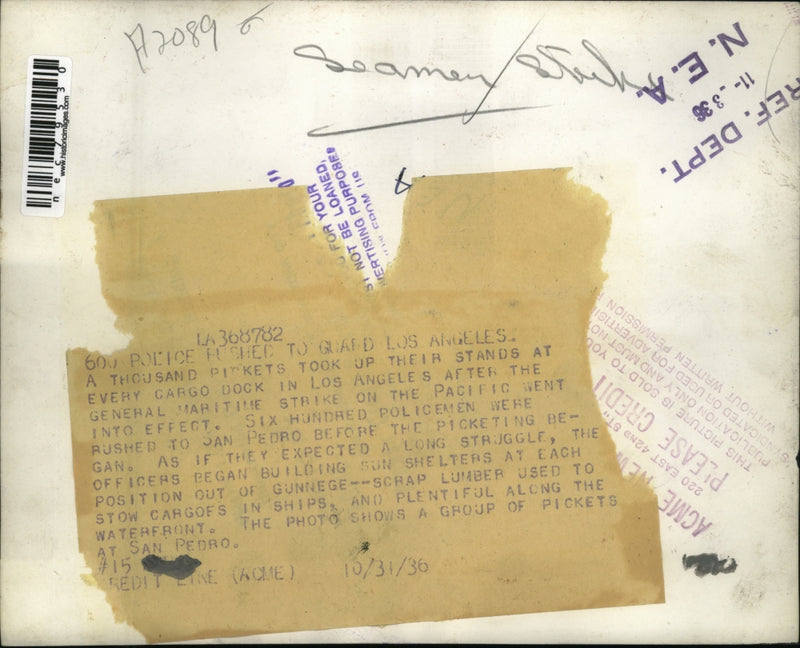 A2089
Seamen/Strike
N. E. A.
11-3 36
REF. DEPT.
www.historicimages.com
nec79530
FOR YOUR
NOT BE LOANED,
ERTISING PURPOSES
THIS PICTURE IS SOLD TO YOU
PUBLICATION ONLY AND MUST NOT
SYNDICATED OR USED FOR ADVERTISING
WITHOUT WRITTEN PERMISSION
PLEASE CREDIT
ACME NEW
220 EAST 42ND ST.,
LA368782
600 POLICE RUSHED TO GUARD LOS ANGELES.
A THOUSAND PICKETS TOOK UP THEIR STANDS AT
EVERY CARGO DOCK IN LOS ANGELES AFTER THE
GENERAL MARITIME STRIKE ON THE PACIFIC WENT
INTO EFFECT. SIX HUNDRED POLICEMEN WERE
RUSHED TO SAN PEDRO BEFORE THE PICKETING BE-
GAN. AS IF THEY EXPECTED A LONG STRUGGLE, THE
OFFICERS BEGAN BUILDING SUN SHELTERS AT EACH
POSITION OUT OF GUNNEGE--SCRAP LUMBER USED TO
STOW CARGOES IN SHIPS, AND PLENTIFUL ALONG THE
WATERFRONT. THE PHOTO SHOWS A GROUP OF PICKETS
AT SAN PEDRO.
#15
CREDIT LINE (ACME) 10/31/36